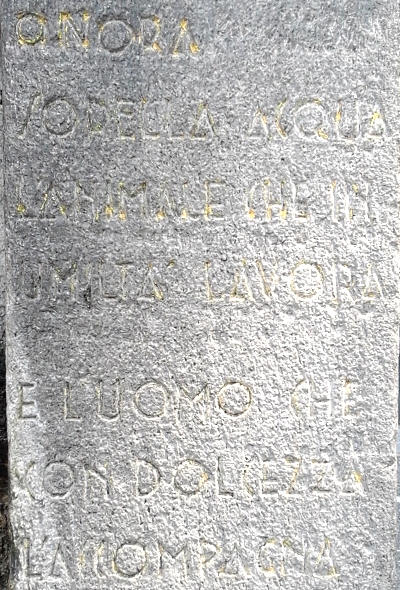 ONORA
SODELLA ACQUA
L'ANIMALE CHE IN
UMILTA' LAVORA
E L'UOMO CHE
CON DOLCEZZA
L'ACCOMPAGNA